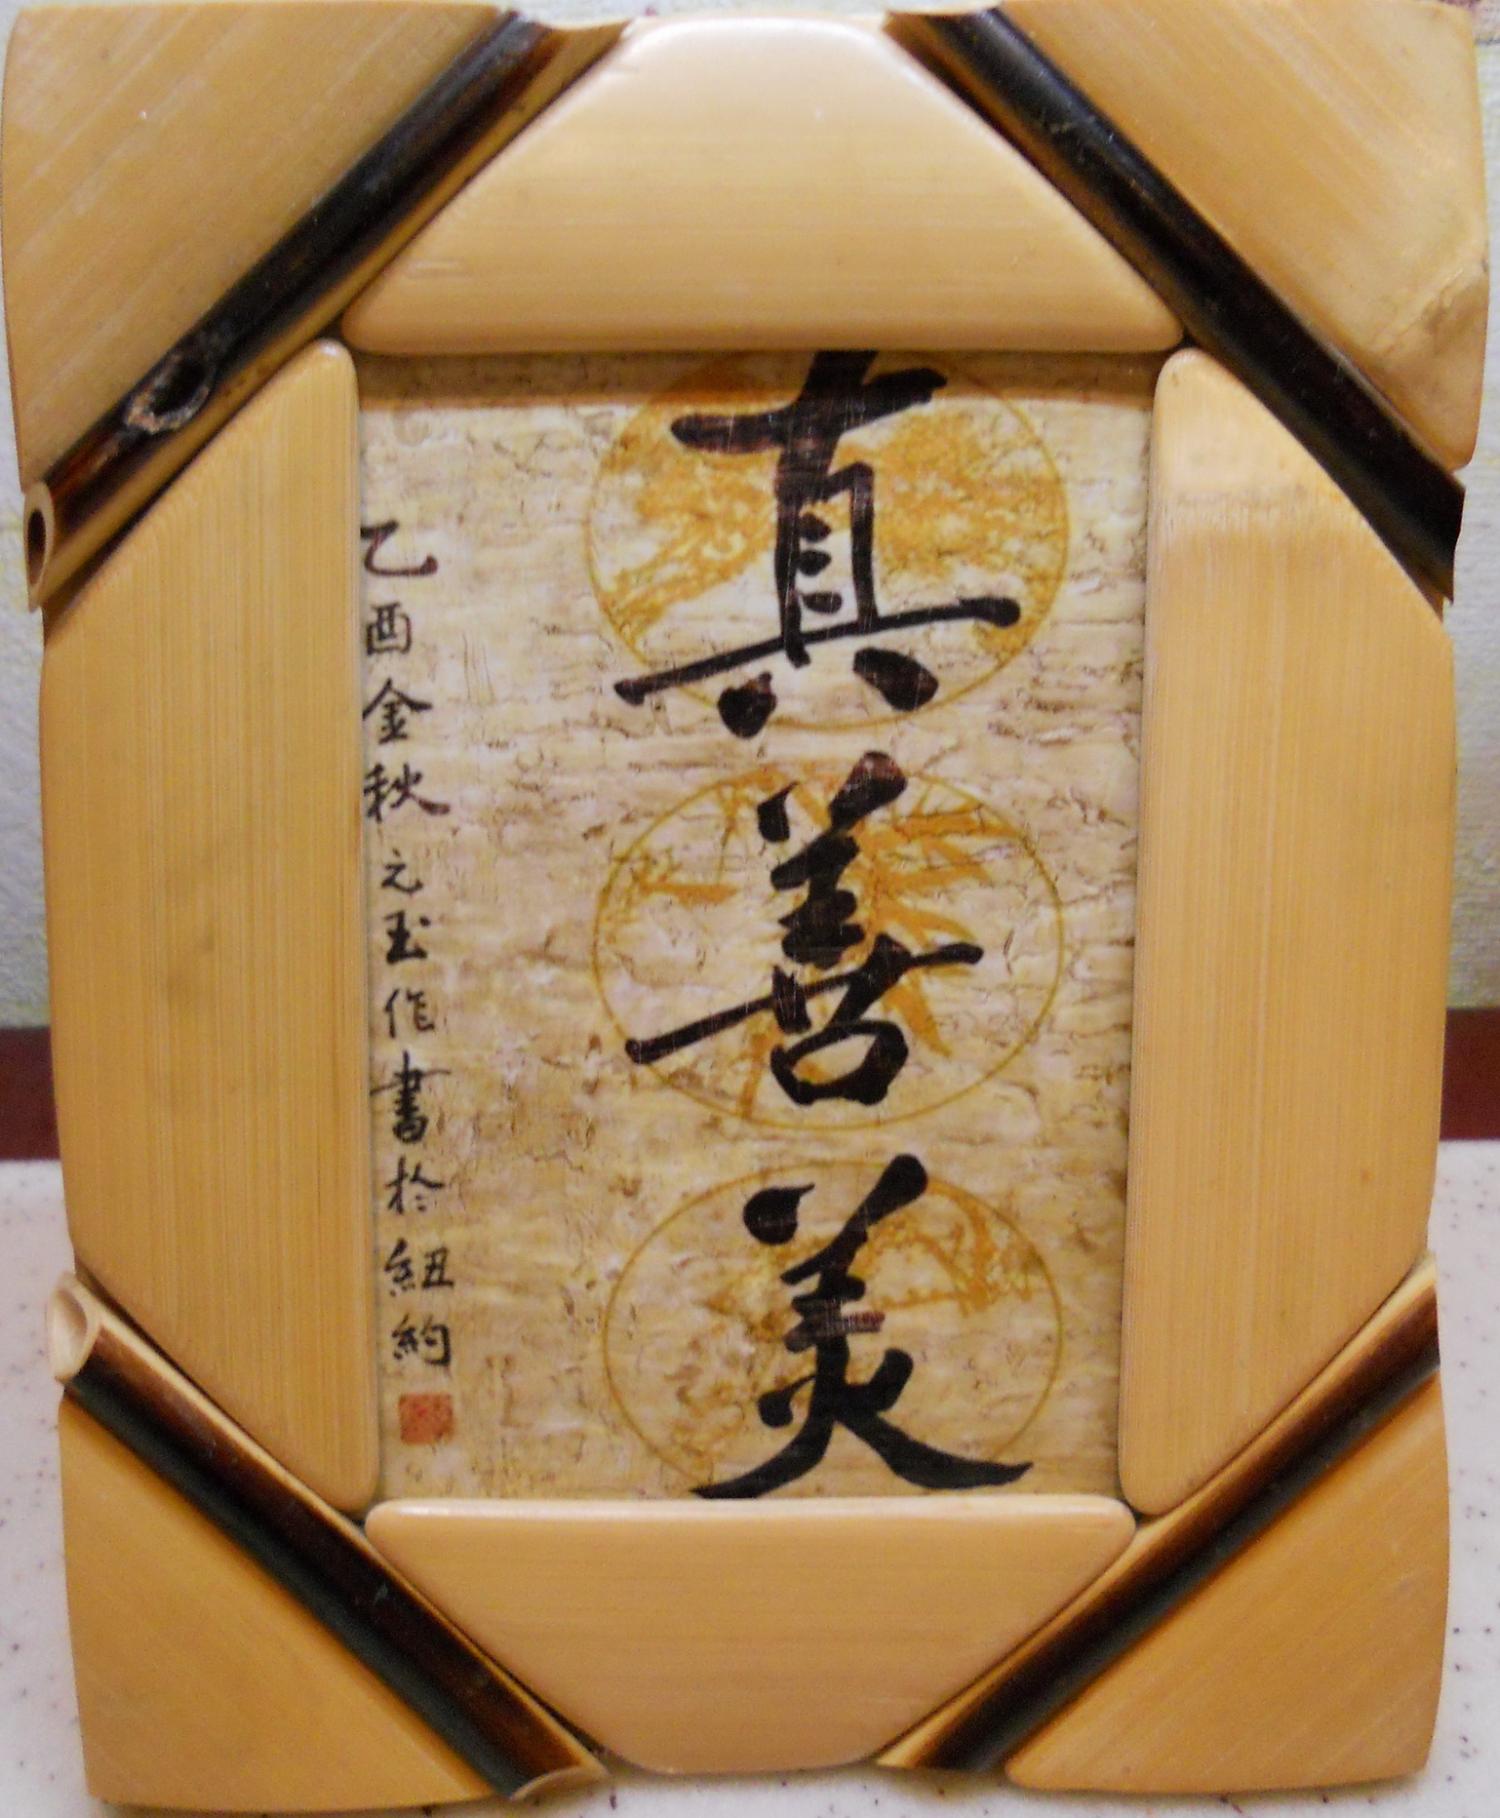 真善美
乙酉金秋元玉作書於紐約